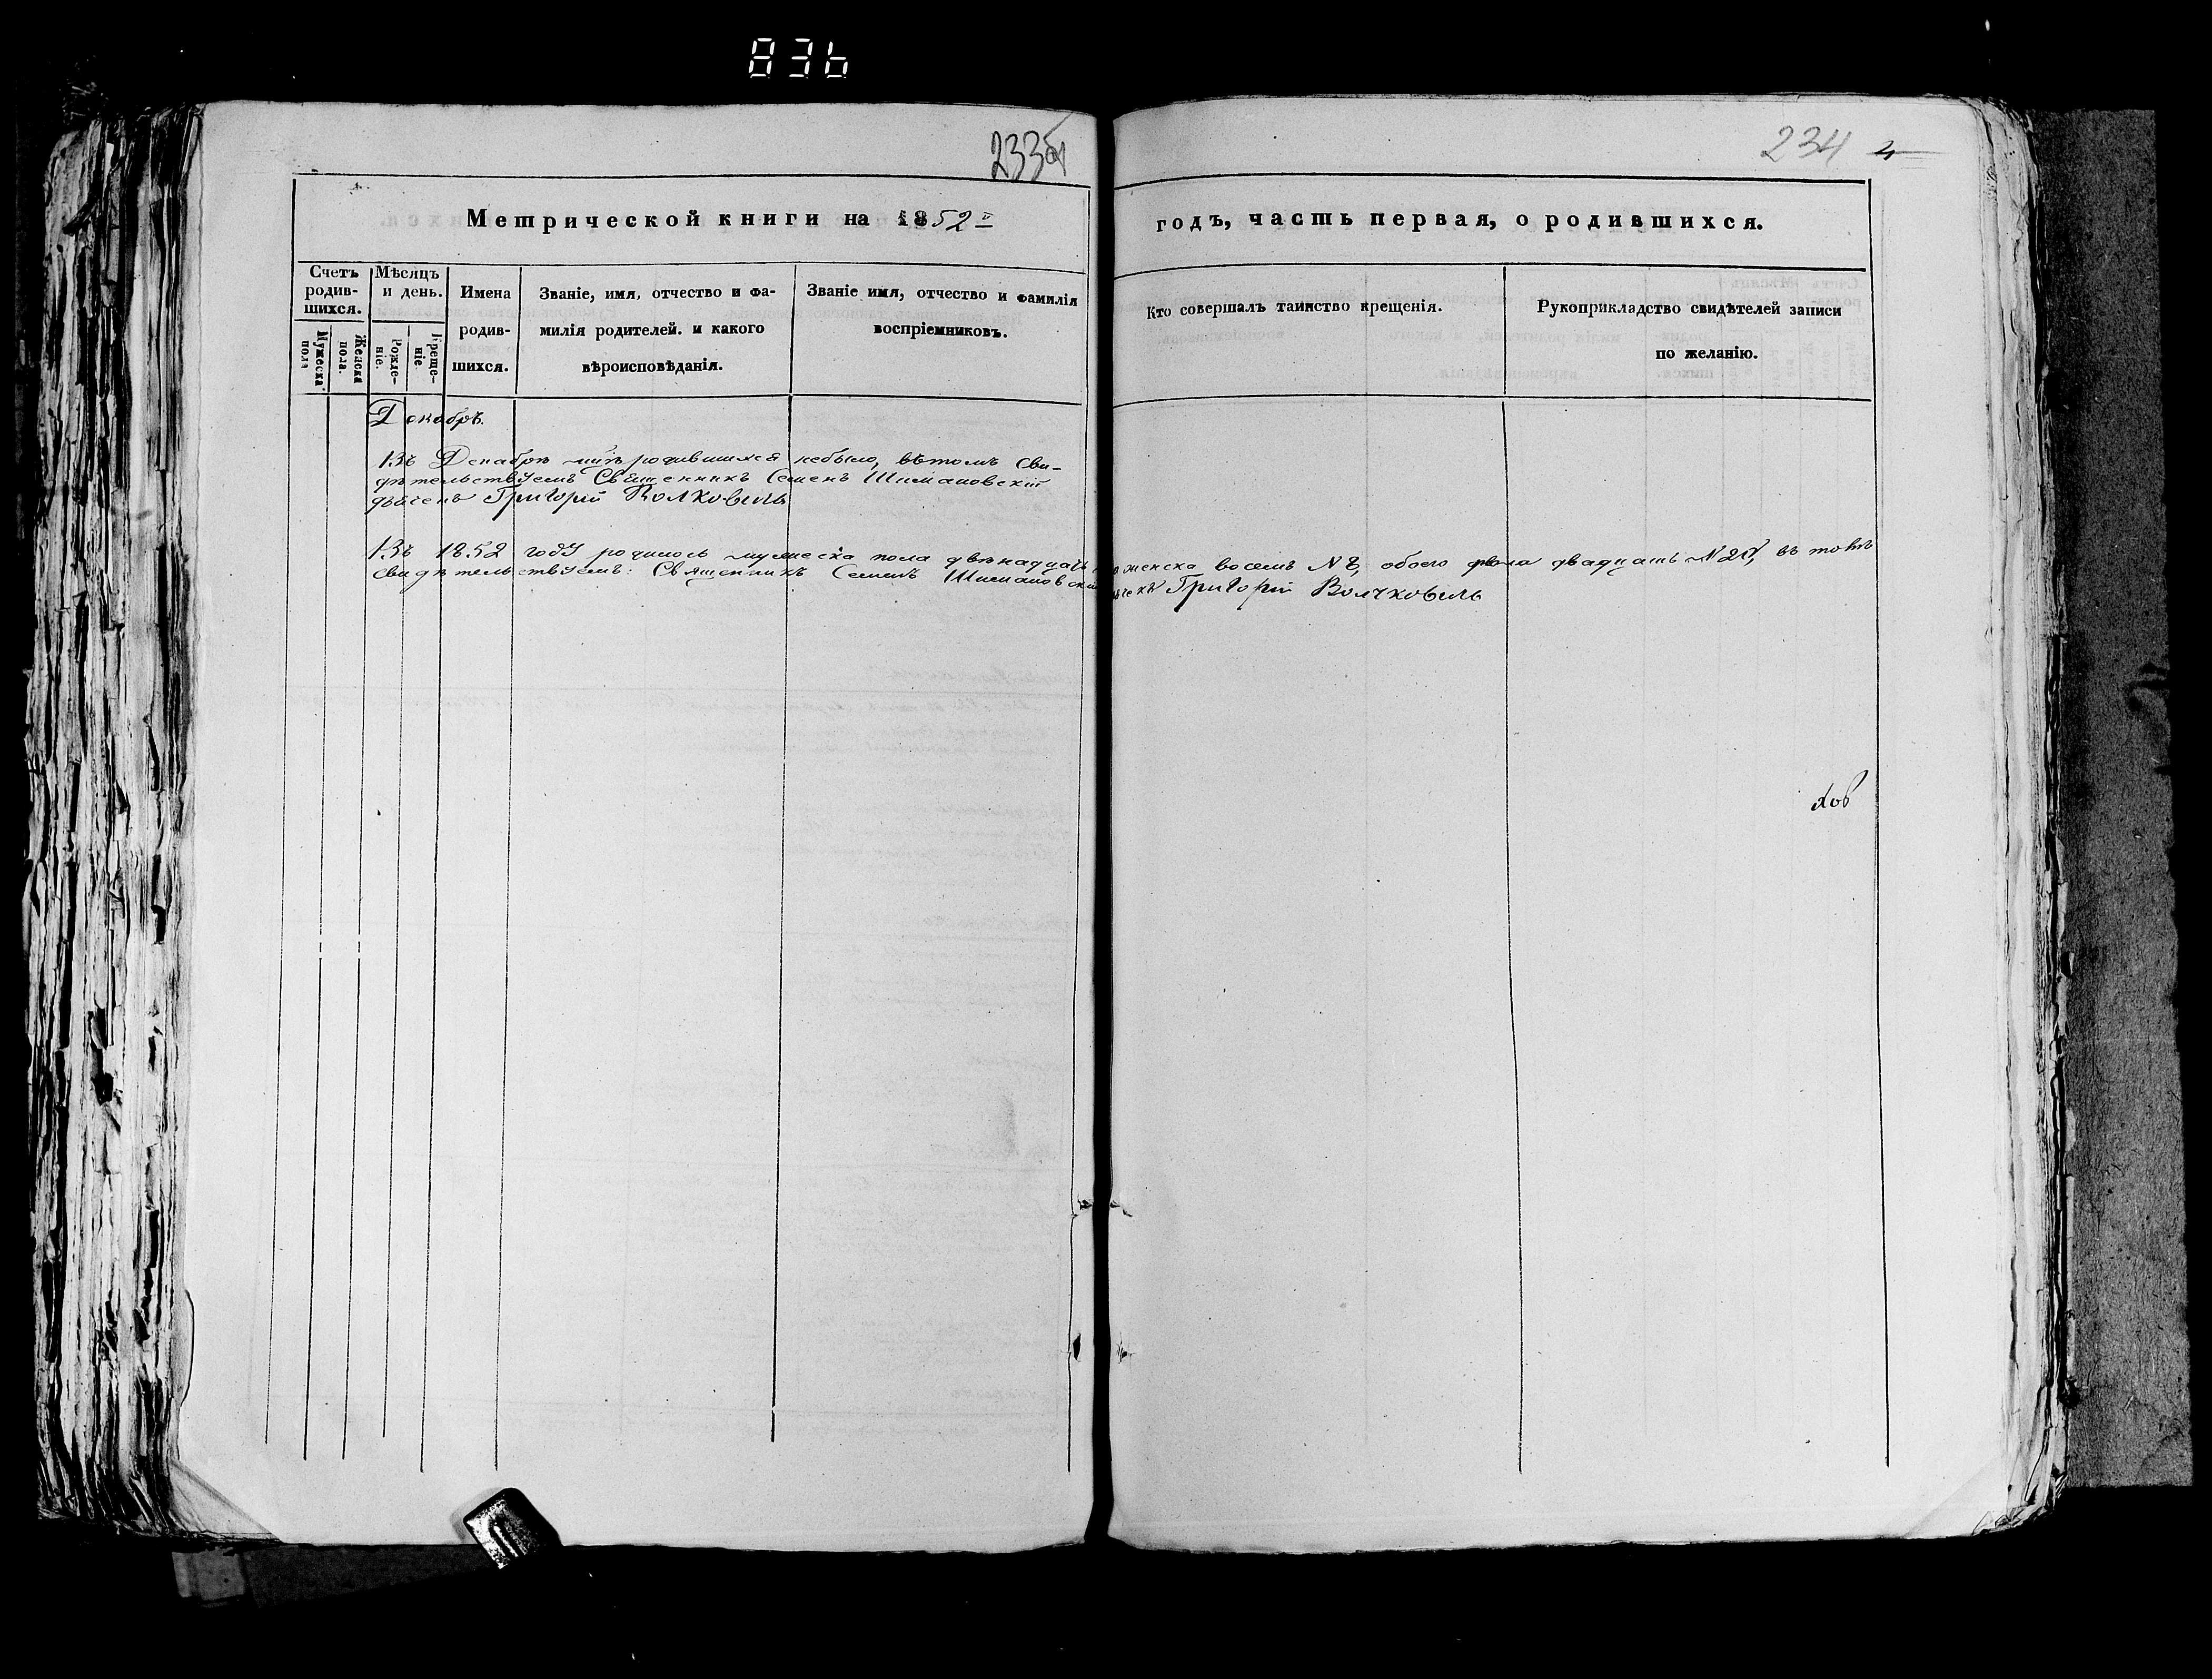 836
233об
234
4
Метрической книги на 1852й
годъ, часть первая, о родившихся.
Счетъ родив-шихся.
Мужеска пола
Женска пола.
Мѣсяцъ и день.
Рожде-ніе.
Креще-ніе
Имена родив-шихся.
Званіе, имя, отчество и фа-
милія родителей. и какого
вѣроисповѣданія.
Званіе имя, отчество и фамилія
воспріемниковъ.
Кто совершалъ таинство крещенія.
Рукоприкладство свидѣтелей записи
по желанію.
Декабрь.
Въ Декабрѣ родившихся небыло, вътомъ сви-
дѣтельствуемъ Священникъ Семенъ Шимановскій
дьячекъ Григорій Волковичь
Въ 1852 году родилось мужеска пола двѣнадцать женска восемь N 8, обоего пола двадцать N 20, въ томъ
свидѣтельствуемъ: Священникъ Семенъ Шимановскій дьячекъ Григорій Волчковичь